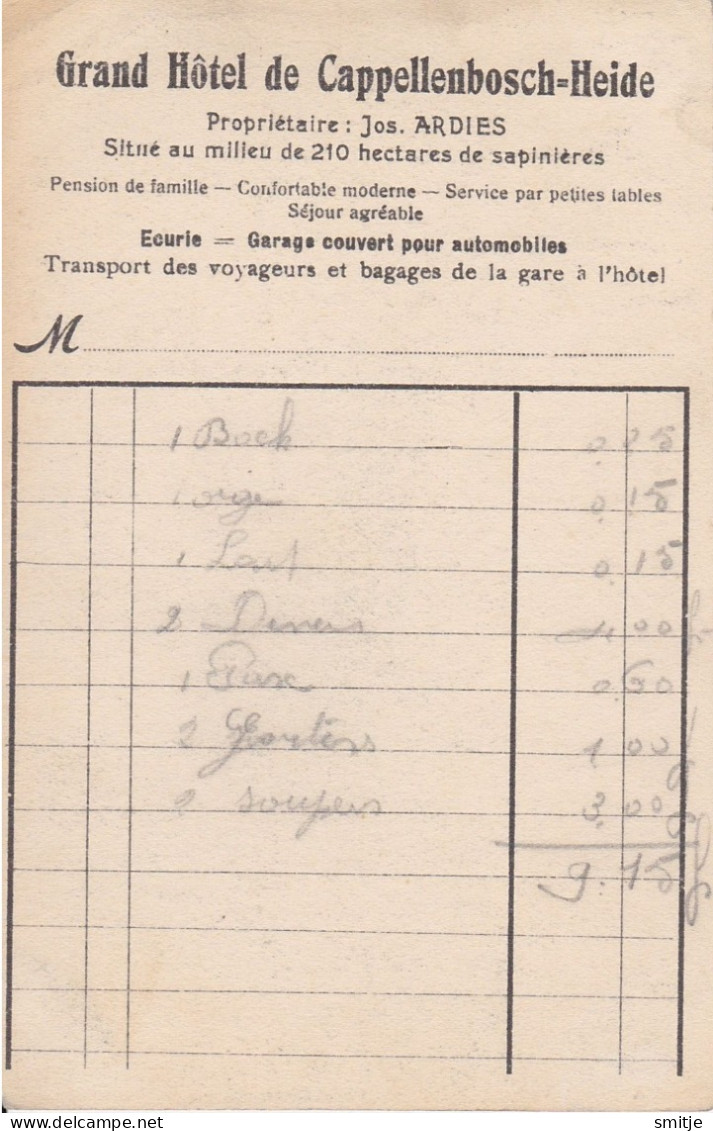 Grand Hôtel de Cappellenbosch=Heide
Propriétaire : Jos. ARDIES
Situé au milieu de 210 hectares de sapinières
Pension de famille — Confortable moderne — Service par petites tables
Séjour agréable
Ecurie = Garage couvert pour automobiles
Transport des voyageurs et bagages de la gare à l'hôtel
M
1 Bock
1 orge 0.15
1 Lait 0.15
2 Diners 4.00
1 0.60
2 Goûters 1.00
2 soupers 3.00
9.15
delcampe.net
smitje